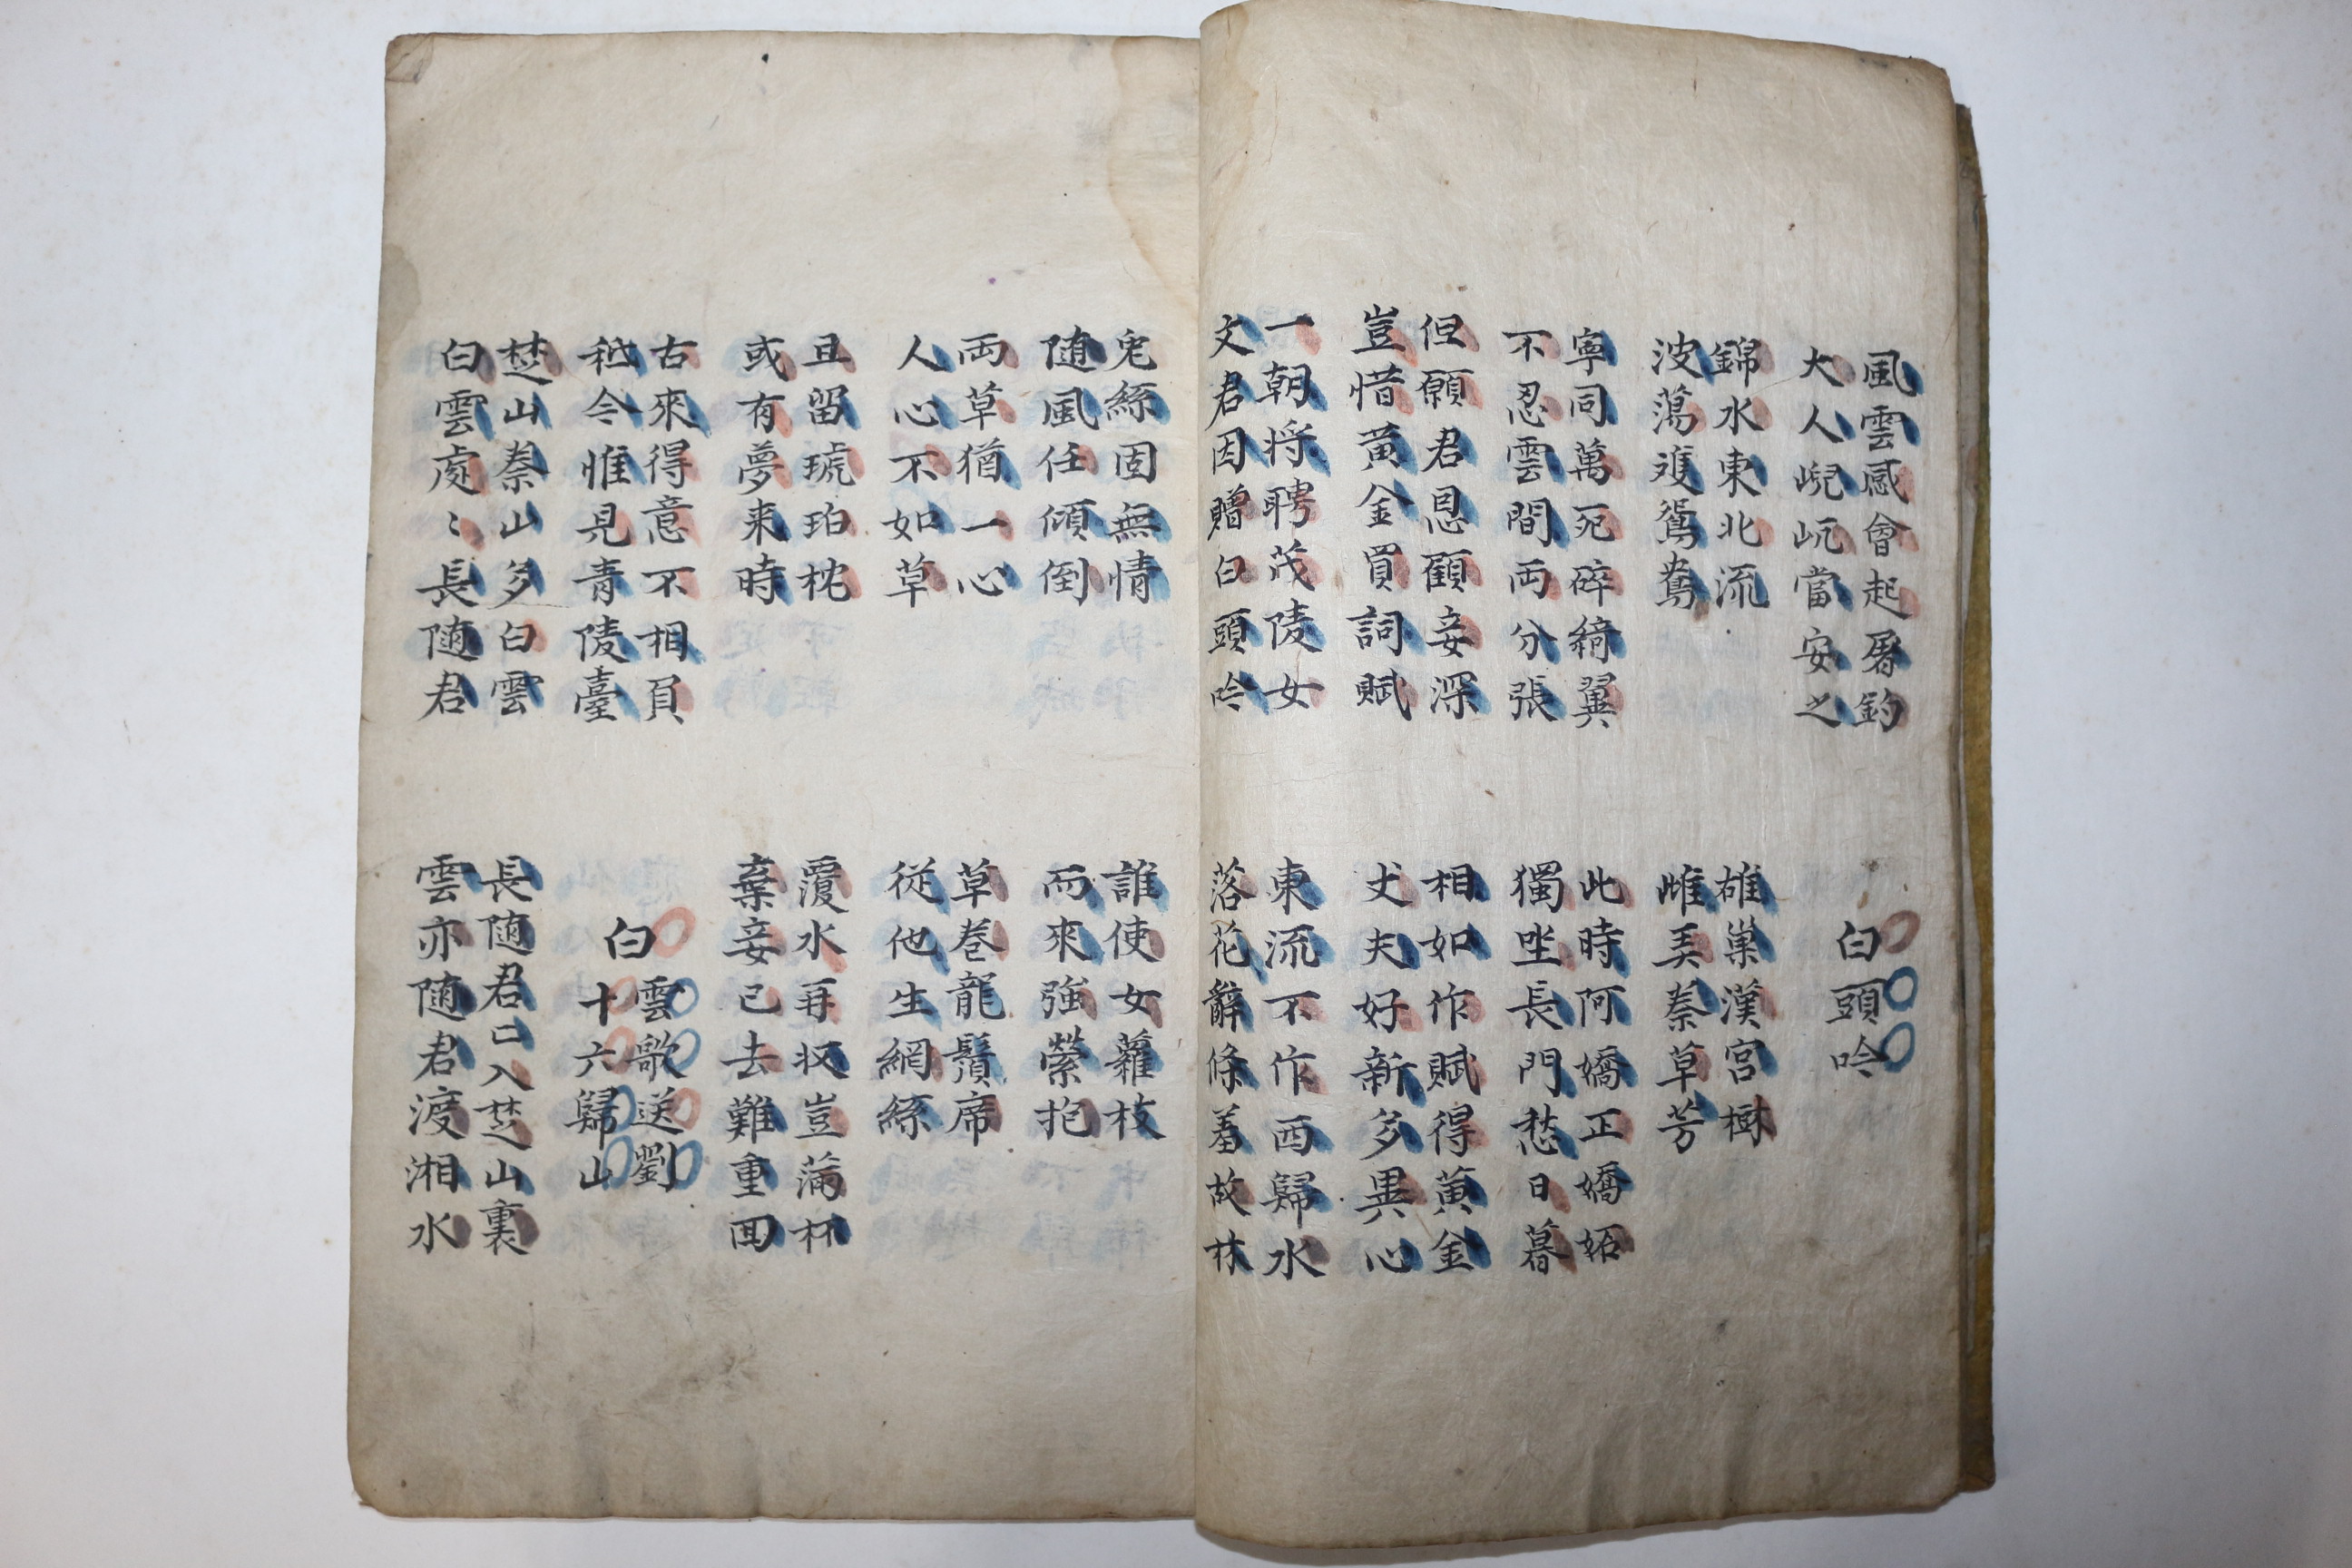 風雲感會起屠釣
大人峴屼當安之
白頭吟
錦水東北流
波蕩雙鴛鴦
雄巢漢宮樹
雌弄秦草芳
寧同萬死碎綺翼
不忍雲間両分張
此時阿嬌正嬌妬
獨坐長門愁日暮
但願君恩顧妾深
豈惜黃金買詞賦
相如作賦得黃金
丈夫好新多異心
一朝将聘茂陵女
文君因贈白頭吟
東流不作西歸水
落花辭條羞故林
兎絲固無情
随風任傾倒
誰使女蘿枝
而來強縈抱
両草猶一心
人心不如草
草卷龍鬚席
從他生網絲
且留琥珀枕
或有夢来時
覆水再収豈滿杯
棄妾已去難重囬
古來得意不相負
秪今惟見青陵臺
白雲歌送劉
十六歸山
楚山秦山多白雲
白雲處〻長随君
長随君已入楚山裏
雲亦随君渡湘水